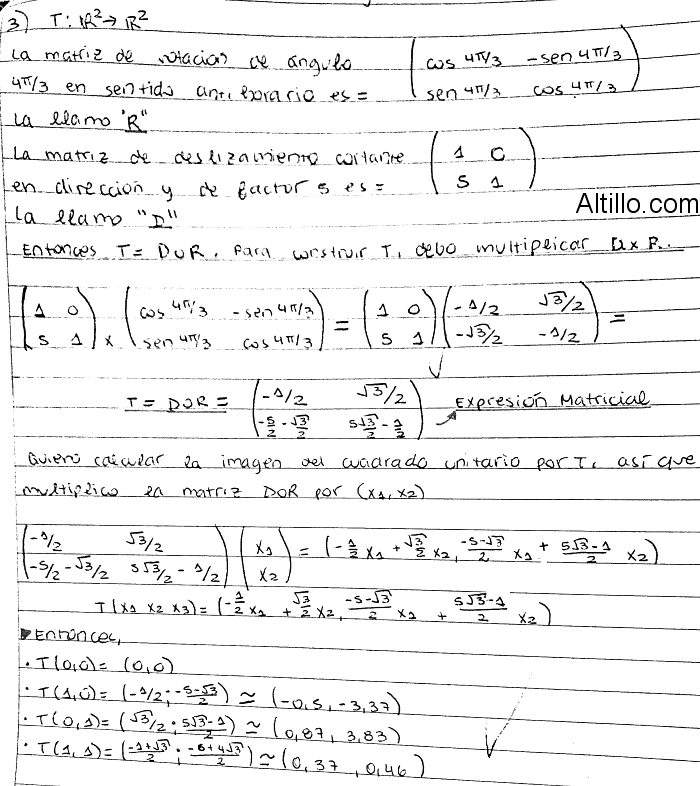 3) T: ℝ²→ℝ²
La matriz de rotación de ángulo (cos 4π/3 -sen 4π/3
4π/3 en sentido antihorario es = sen 4π/3 cos 4π/3)
La llamo "R"
La matriz de deslizamiento cortante (1 0
en dirección y de factor 5 es = 5 1)
La llamo "D"
Altillo.com
Entonces T = DoR. Para construir T, debo multiplicar D x R.
(1 0 (cos 4π/3 -sen 4π/3 (1 0 (-1/2 √3/2
5 1) x sen 4π/3 cos 4π/3) = 5 1) -√3/2 -1/2) =
T = DOR = (-1/2 √3/2
-5/2 - √3/2 5√3/2 - 1/2) → Expresión Matricial
Quiero calcular la imagen del cuadrado unitario por T, así que
multiplico la matriz DOR por (x1, x2)
(-1/2 √3/2 (x1
-5/2 -√3/2 5√3/2 - 1/2) x2) = (-1/2 x1 + √3/2 x2, -5-√3/2 x1 + 5√3-1/2 x2)
T(x1 x2 x3) = (-1/2 x1 + √3/2 x2, -5-√3/2 x1 + 5√3-1/2 x2)
Entonces,
· T(0,0) = (0,0)
· T(1,0) = (-1/2; -5-√3/2) ≃ (-0,5, -3,37)
· T(0,1) = (√3/2; 5√3-1/2) ≃ (0,87, 3,83)
· T(1,1) = (-1+√3/2; -6+4√3/2) ≃ (0,37, 0,46)